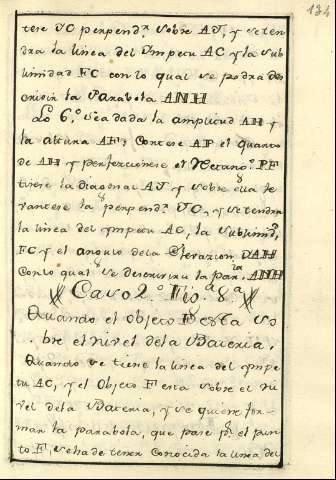 134
tese JC perpend.r sobre AJ, y se ten
dra la linea del Impetu AC y la sub
limidad FC con lo qual se podra des
crivir la Parabola ANH
Lo 6.o sea dada la amplitud AH y
la altura AF: Cortese AP el quarto
de AH y perfeccionese el Rectang.o PF
tirese la diagonal AJ y sobre ella le
vantese la perpend.r JC, y se tendra
la linea del Impetu AC, la sublimid.d
FC y el angulo de la Elevazion DAH
Con lo qual se descrivira la par.la ANH
Caso 2.o Fig.a 8.a
Quando el objeto F esta so
bre el nivel de la Bateria.
Quando se tiene la linea del Impe
tu AC, y el Objeto F esta sobre el ni
vel de la Bateria, y se quiere for-
mar la parabola, que pase p.r el pun
to F, se ha de tener Conocida la linea del